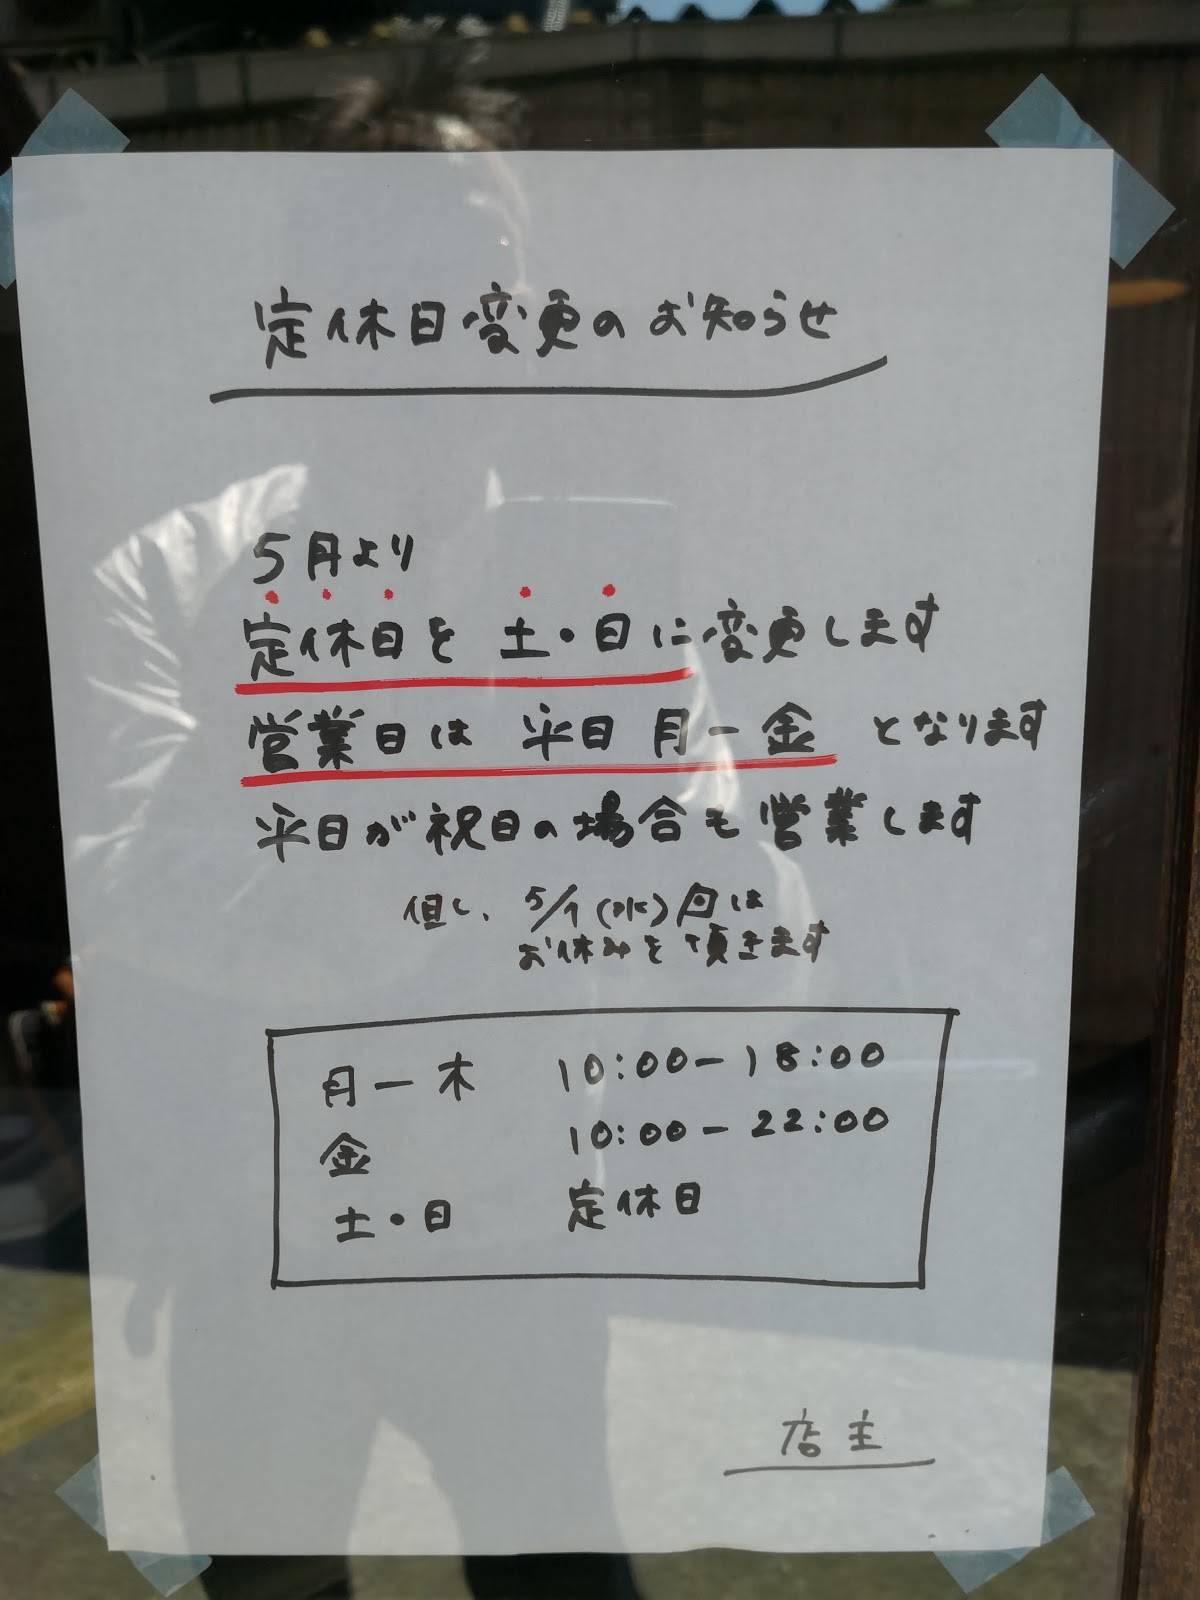 定休日変更のお知らせ
5月より
定休日を 土・日に変更します
営業日は 平日 月－金 となります
平日が祝日の場合も営業します
但し、5/1(水)は
お休みを頂きます
月－木 10:00－18:00
金 10:00－22:00
土・日 定休日
店主